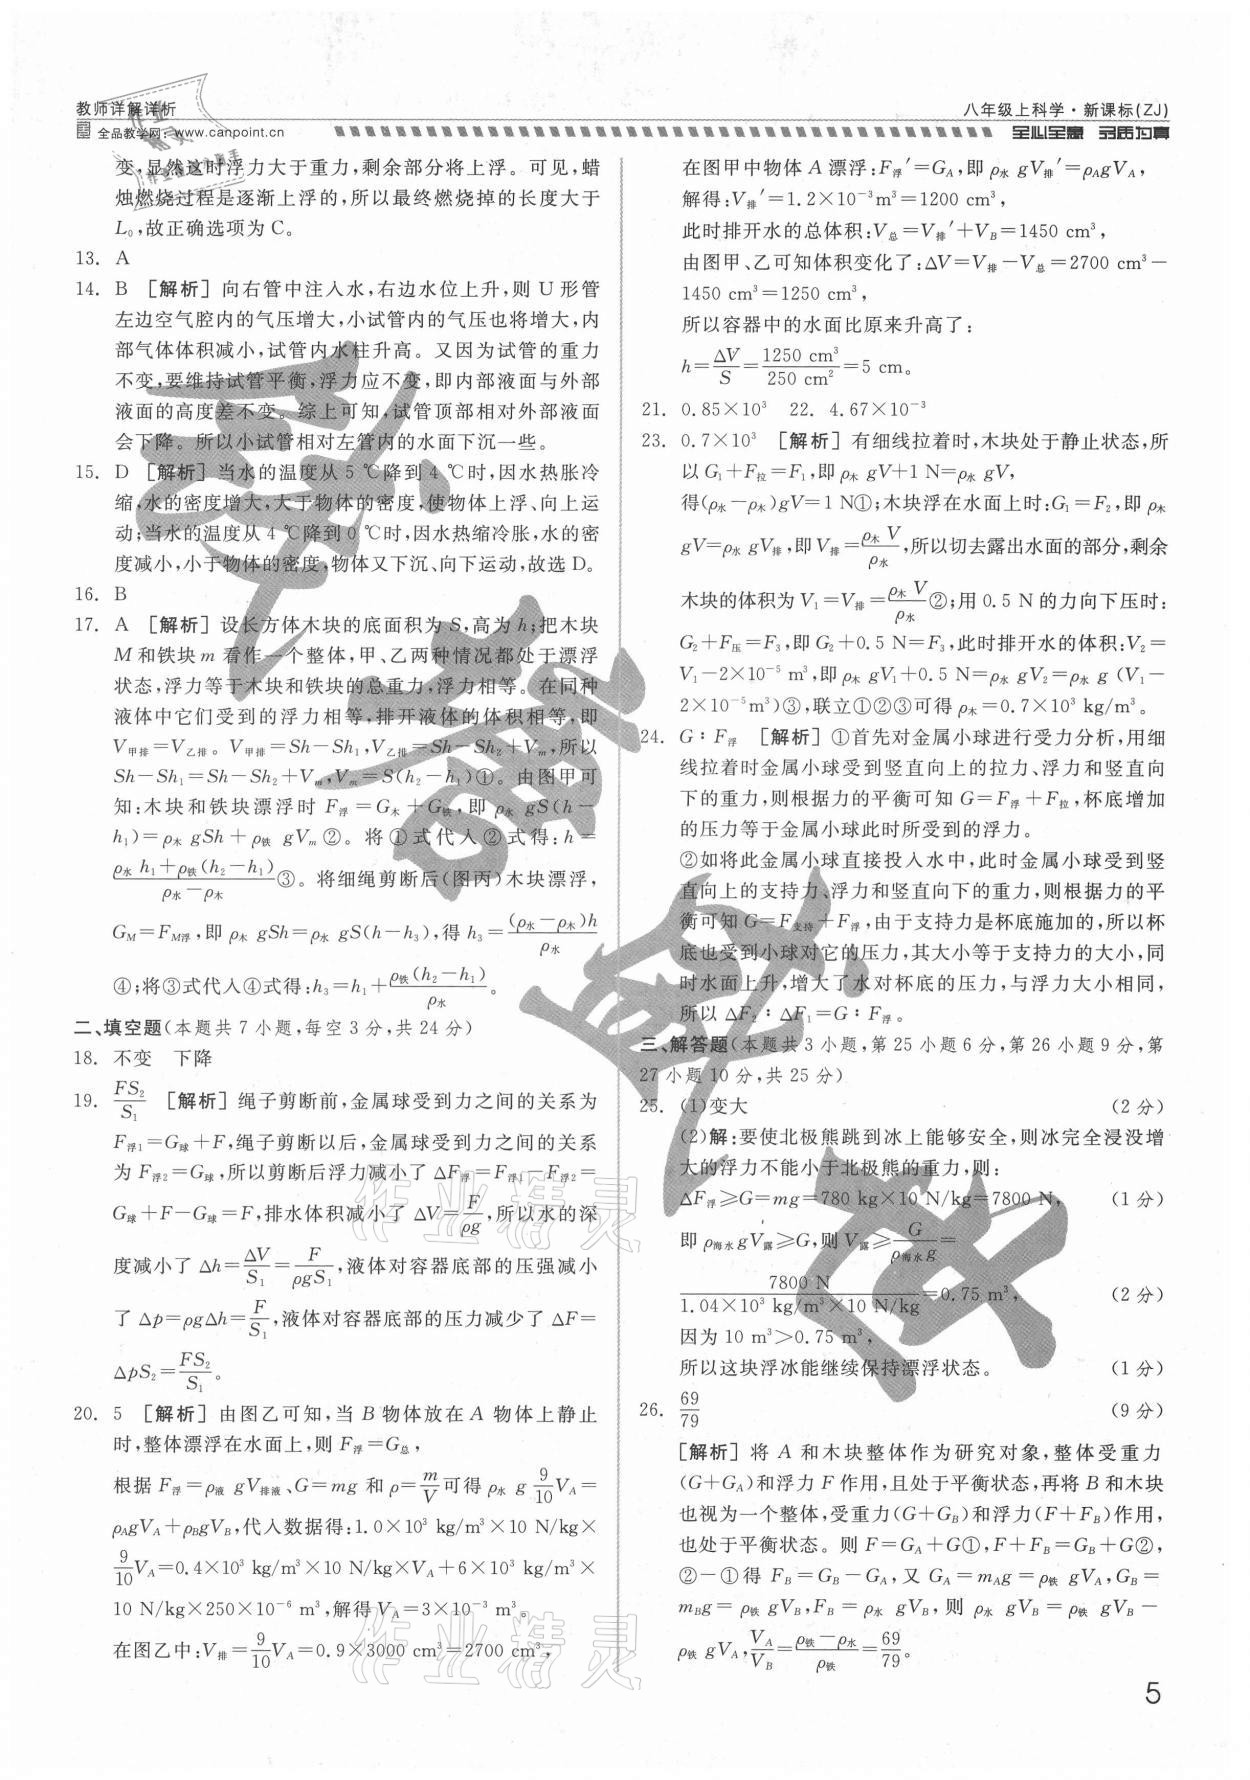 教师详解详析
八年级上科学·新课标(ZJ)
全品教学网:www.canpoint.cn
全心全意 名质为真
变,显然这时浮力大于重力,剩余部分将上浮。可见,蜡
烛燃烧过程是逐渐上浮的,所以最终燃烧掉的长度大于
L₀,故正确选项为C。
13. A
14. B [解析] 向右管中注入水,右边水位上升,则U形管
左边空气腔内的气压增大,小试管内的气压也将增大,内
部气体体积减小,试管内水柱升高。又因为试管的重力
不变,要维持试管平衡,浮力应不变,即内部液面与外部
液面的高度差不变。综上可知,试管顶部相对外部液面
会下降。所以小试管相对左管内的水面下沉一些。
15. D [解析] 当水的温度从5 ℃降到4 ℃时,因水热胀冷
缩,水的密度增大,大于物体的密度,使物体上浮、向上运
动;当水的温度从4 ℃降到0 ℃时,因水热缩冷胀,水的密
度减小,小于物体的密度,物体又下沉、向下运动,故选D。
16. B
17. A [解析] 设长方体木块的底面积为S,高为h;把木块
M和铁块m看作一个整体,甲、乙两种情况都处于漂浮
状态,浮力等于木块和铁块的总重力,浮力相等。在同种
液体中它们受到的浮力相等,排开液体的体积相等,即
V甲排=V乙排。V甲排=Sh-Sh₁,V乙排=Sh-Sh₂+Vm,所以
Sh-Sh₁=Sh-Sh₂+Vm,Vm=S(h₂-h₁)①。由图甲可
知:木块和铁块漂浮时F浮=G木+G铁,即ρ水 gS(h-
h₁)=ρ木 gSh+ρ铁 gVm②。将①式代入②式得:h=
(ρ水 h₁+ρ铁(h₂-h₁))/(ρ水-ρ木)③。将细绳剪断后(图丙)木块漂浮,
GM=FM浮,即ρ木 gSh=ρ水 gS(h-h₃),得h₃=(ρ水-ρ木)h/ρ水
④;将③式代入④式得:h₃=h₁+ρ铁(h₂-h₁)/ρ水。
二、填空题(本题共7小题,每空3分,共24分)
18. 不变 下降
19. FS₂/S₁ [解析] 绳子剪断前,金属球受到力之间的关系为
F浮1=G球+F,绳子剪断以后,金属球受到力之间的关系
为F浮2=G球,所以剪断后浮力减小了ΔF浮=F浮1-F浮2=
G球+F-G球=F,排水体积减小了ΔV=F/ρg,所以水的深
度减小了Δh=ΔV/S₁=F/ρgS₁,液体对容器底部的压强减小
了Δp=ρgΔh=F/S₁,液体对容器底部的压力减少了ΔF=
ΔpS₂=FS₂/S₁。
20. 5 [解析] 由图乙可知,当B物体放在A物体上静止
时,整体漂浮在水面上,则F浮=G总,
根据F浮=ρ液 gV排液、G=mg和ρ=m/V可得ρ水 g 9/10 VA=
ρAgVA+ρBgVB,代入数据得:1.0×10³ kg/m³×10 N/kg×
9/10 VA=0.4×10³ kg/m³×10 N/kg×VA+6×10³ kg/m³×
10 N/kg×250×10⁻⁶ m³,解得VA=3×10⁻³ m³。
在图乙中:V排=9/10 VA=0.9×3000 cm³=2700 cm³,
在图甲中物体A漂浮:F浮′=GA,即ρ水 gV排′=ρAgVA,
解得:V排′=1.2×10⁻³m³=1200 cm³,
此时排开水的总体积:V总=V排′+VB=1450 cm³,
由图甲、乙可知体积变化了:ΔV=V排-V总=2700 cm³-
1450 cm³=1250 cm³,
所以容器中的水面比原来升高了:
h=ΔV/S=1250 cm³/250 cm²=5 cm。
21. 0.85×10³ 22. 4.67×10⁻³
23. 0.7×10³ [解析] 有细线拉着时,木块处于静止状态,所
以G₁+F拉=F₁,即ρ木 gV+1 N=ρ水 gV,
得(ρ水-ρ木)gV=1 N①;木块浮在水面上时:G₁=F₂,即ρ木
gV=ρ水 gV排,即V排=ρ木 V/ρ水,所以切去露出水面的部分,剩余
木块的体积为V₁=V排=ρ木 V/ρ水②;用0.5 N的力向下压时:
G₂+F压=F₃,即G₂+0.5 N=F₃,此时排开水的体积:V₂=
V₁-2×10⁻⁵ m³,即ρ木 gV₁+0.5 N=ρ水 gV₂=ρ水 g (V₁-
2×10⁻⁵m³)③,联立①②③可得ρ木=0.7×10³ kg/m³。
24. G∶F浮 [解析] ①首先对金属小球进行受力分析,用细
线拉着时金属小球受到竖直向上的拉力、浮力和竖直向
下的重力,则根据力的平衡可知G=F浮+F拉,杯底增加
的压力等于金属小球此时所受到的浮力。
②如将此金属小球直接投入水中,此时金属小球受到竖
直向上的支持力、浮力和竖直向下的重力,则根据力的平
衡可知G=F支持+F浮,由于支持力是杯底施加的,所以杯
底也受到小球对它的压力,其大小等于支持力的大小,同
时水面上升,增大了水对杯底的压力,与浮力大小相同,
所以ΔF₂∶ΔF₁=G∶F浮。
三、解答题(本题共3小题,第25小题6分,第26小题9分,第
27小题10分,共25分)
25. (1)变大 (2分)
(2)解:要使北极熊跳到冰上能够安全,则冰完全浸没增
大的浮力不能小于北极熊的重力,则:
ΔF浮≥G=mg=780 kg×10 N/kg=7800 N, (1分)
即ρ海水gV露≥G,则V露≥G/ρ海水g=
7800 N/(1.04×10³ kg/m³×10 N/kg)=0.75 m³, (2分)
因为10 m³>0.75 m³,
所以这块浮冰能继续保持漂浮状态。 (1分)
26. 69/79 (9分)
[解析] 将A和木块整体作为研究对象,整体受重力
(G+GA)和浮力F作用,且处于平衡状态,再将B和木块
也视为一个整体,受重力(G+GB)和浮力(F+FB)作用,
也处于平衡状态。则F=GA+G①,F+FB=GB+G②,
②-①得FB=GB-GA,又GA=mAg=ρ铁 gVA,GB=
mBg=ρ铁 gVB,FB=ρ水 gVB,则ρ水 gVB=ρ铁 gVB-
ρ铁 gVA,VA/VB=(ρ铁-ρ水)/ρ铁=69/79。
5
作业精灵
作业精灵